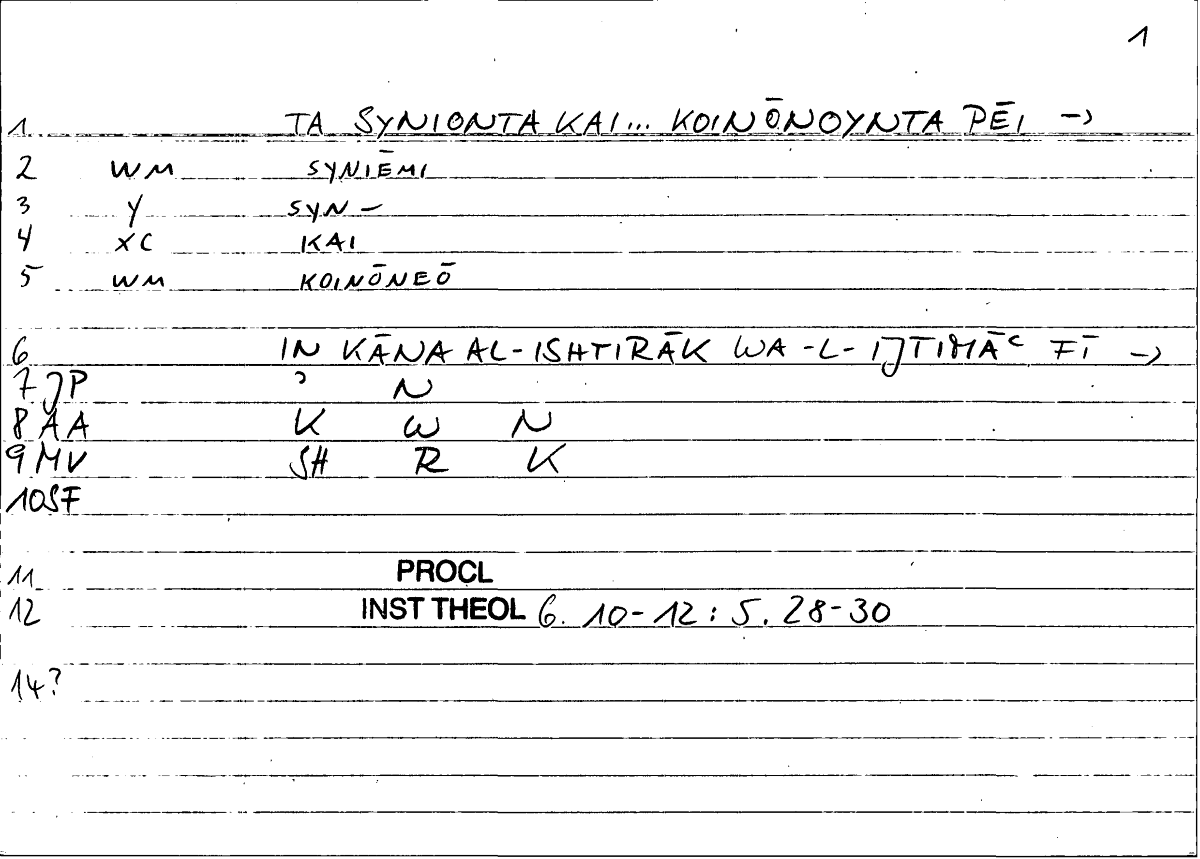 1
1 TA SYNIONTA KAI... KOINŌNOYNTA PĒI →
2 WM SYNIĒMI
3 Y SYN –
4 XC KAI
5 WM KOINŌNEŌ
6 IN KĀNA AL-ISHTIRĀK WA-L-IJTIMĀC FĪ →
7 JP ɔ N
8 AA K W N
9 MV SH R K
10 SF
11 PROCL
12 INST THEOL 6. 10-12: 5. 28-30
14?